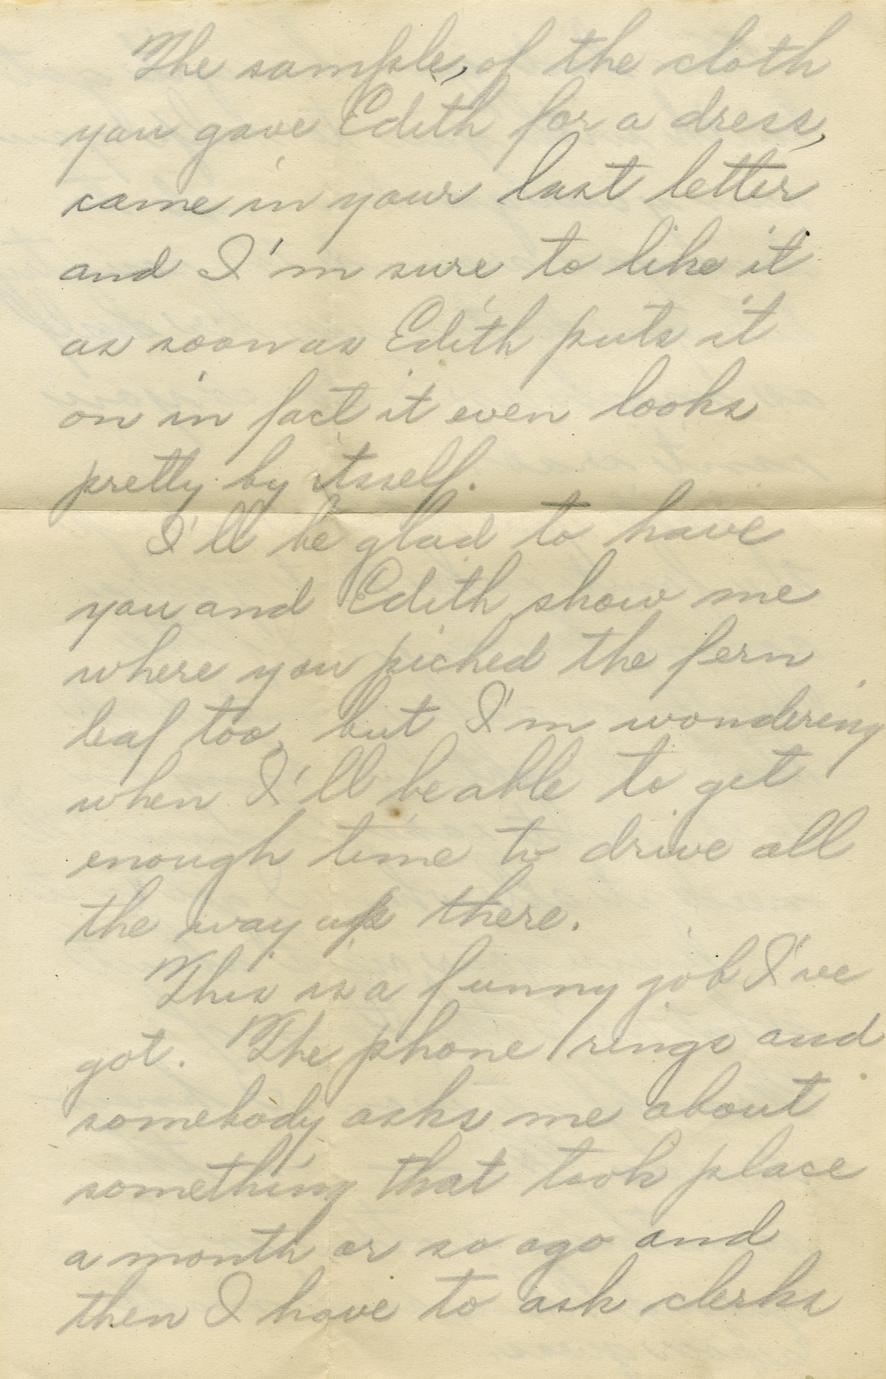 The sample, of the cloth
you gave Edith for a dress,
came in your last letter
and I'm sure to like it
as soon as Edith puts it
on in fact it even looks
pretty by itsself.
I'll be glad to have
you and Edith show me
where you picked the fern
leaf too, but I'm wondering
when I'll be able to get
enough time to drive all
the way up there.
This is a funny job I've
got. The phone rings and
somebody asks me about
something that took place
a month or so ago and
then I have to ask clerks